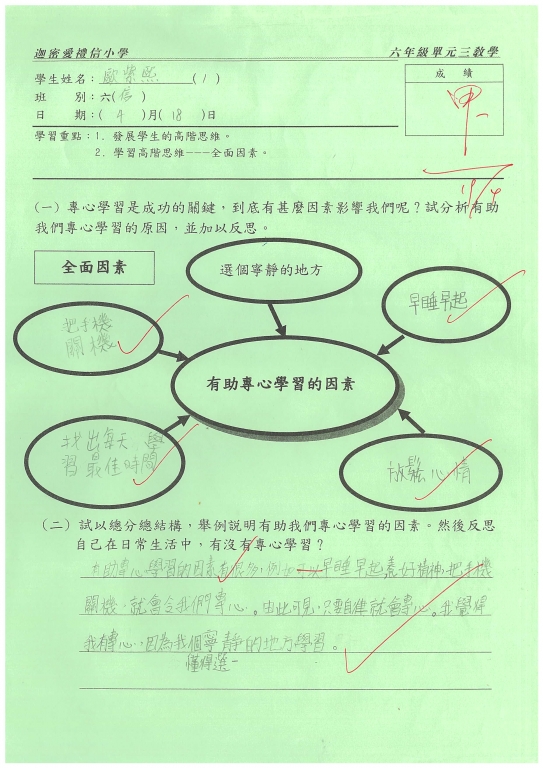 迦密愛禮信小學 六年級單元三教學
學生姓名：歐榮熙 ( / )
成績
甲-
班別：六(信)
日期：( 4 )月( 18 )日
學習重點：1. 發展學生的高階思維。
2. 學習高階思維---全面因素。
19/4
(一) 專心學習是成功的關鍵，到底有甚麼因素影響我們呢？試分析有助
我們專心學習的原因，並加以反思。
全面因素
選個寧靜的地方
早睡早起
把手機
關機
有助專心學習的因素
找出每天 學
習最佳時間
放鬆心情
(二) 試以總分總結構，舉例說明有助我們專心學習的因素。然後反思
自己在日常生活中，有沒有專心學習？
有助專心學習的因素有很多，例如可以早睡早起養好精神，把手機
關機，就會令我們專心。由此可見，只要自律就會專心。我覺得
我有專心，因為我個寧靜的地方學習。
懂得選一